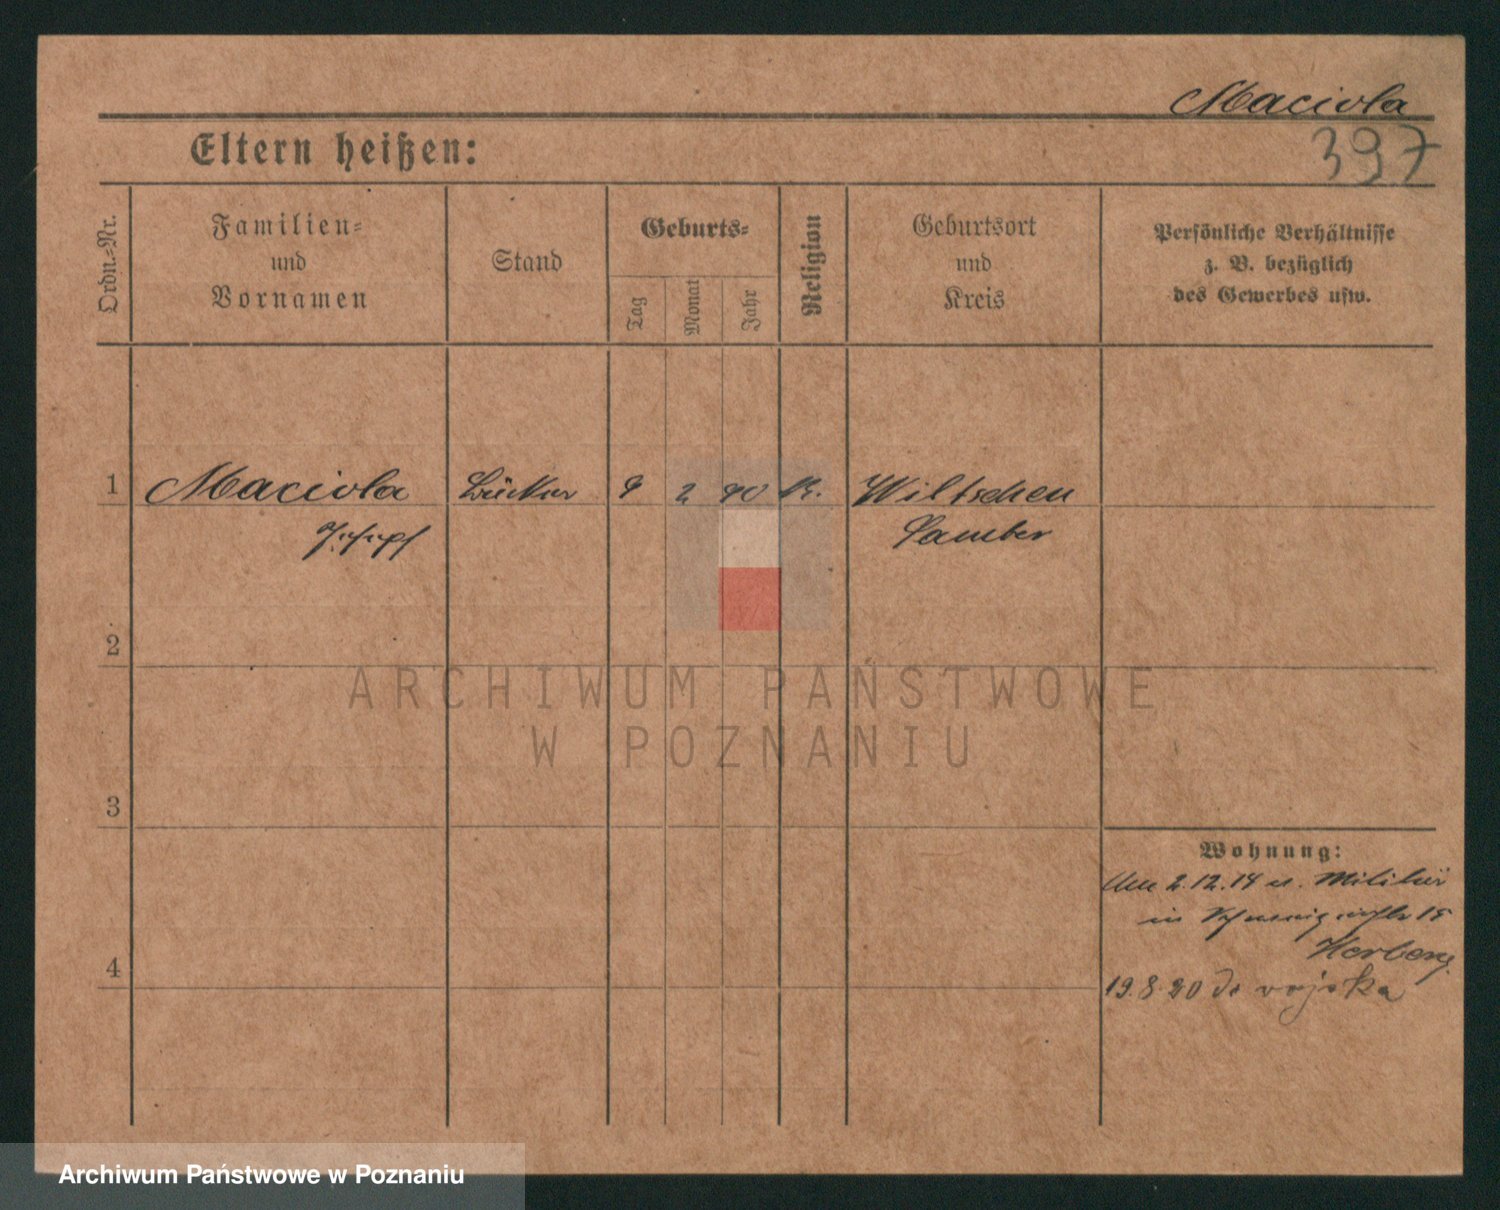 Maciola
397
Eltern heißen:
Ordn.-Nr.
Familien-
und
Vornamen
Stand
Geburts-
Tag
Monat
Jahr
Religion
Geburtsort
und
Kreis
Persönliche Verhältnisse
z. B. bezüglich
des Gewerbes usw.
1 Maciola Bäcker 9 2 90 K. Wiltschen
Josepf Samber
2
ARCHIWUM PAŃSTWOWE
W POZNANIU
3
Wohnung:
2.12.14 v. Militär
in 15
Herberg.
4
19.8.20 do wojska
Archiwum Państwowe w Poznaniu